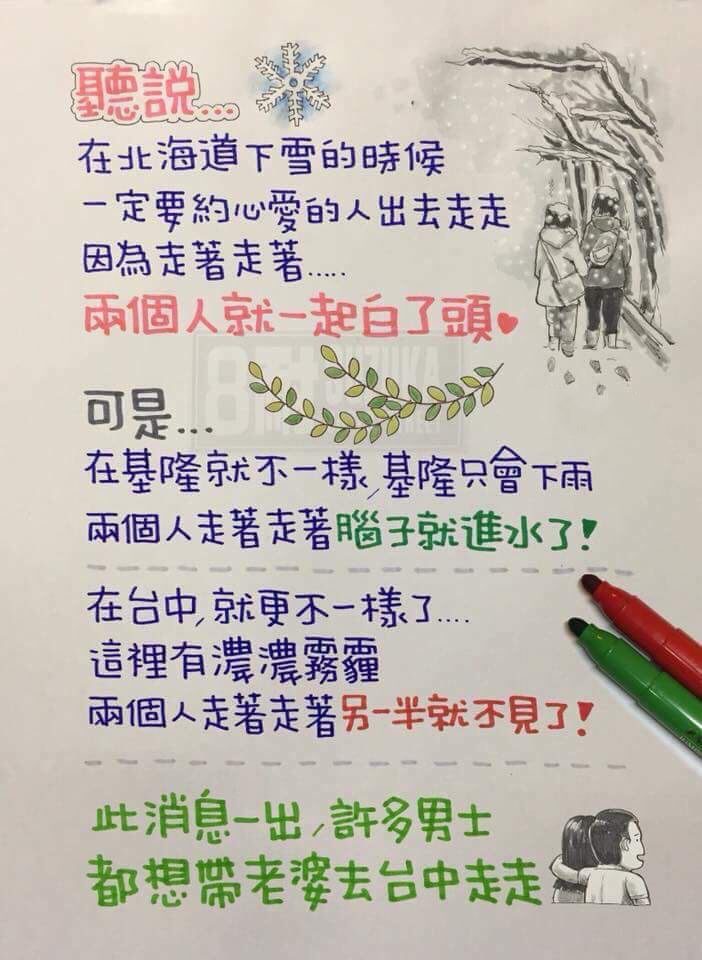 聽說...
在北海道下雪的時候
一定要約心愛的人出去走走
因為走著走著.....
兩個人就一起白了頭♥
可是...
在基隆就不一樣,基隆只會下雨
兩個人走著走著腦子就進水了!
在台中,就更不一樣了....
這裡有濃濃霧霾
兩個人走著走著另一半就不見了!
此消息一出,許多男士
都想帶老婆去台中走走